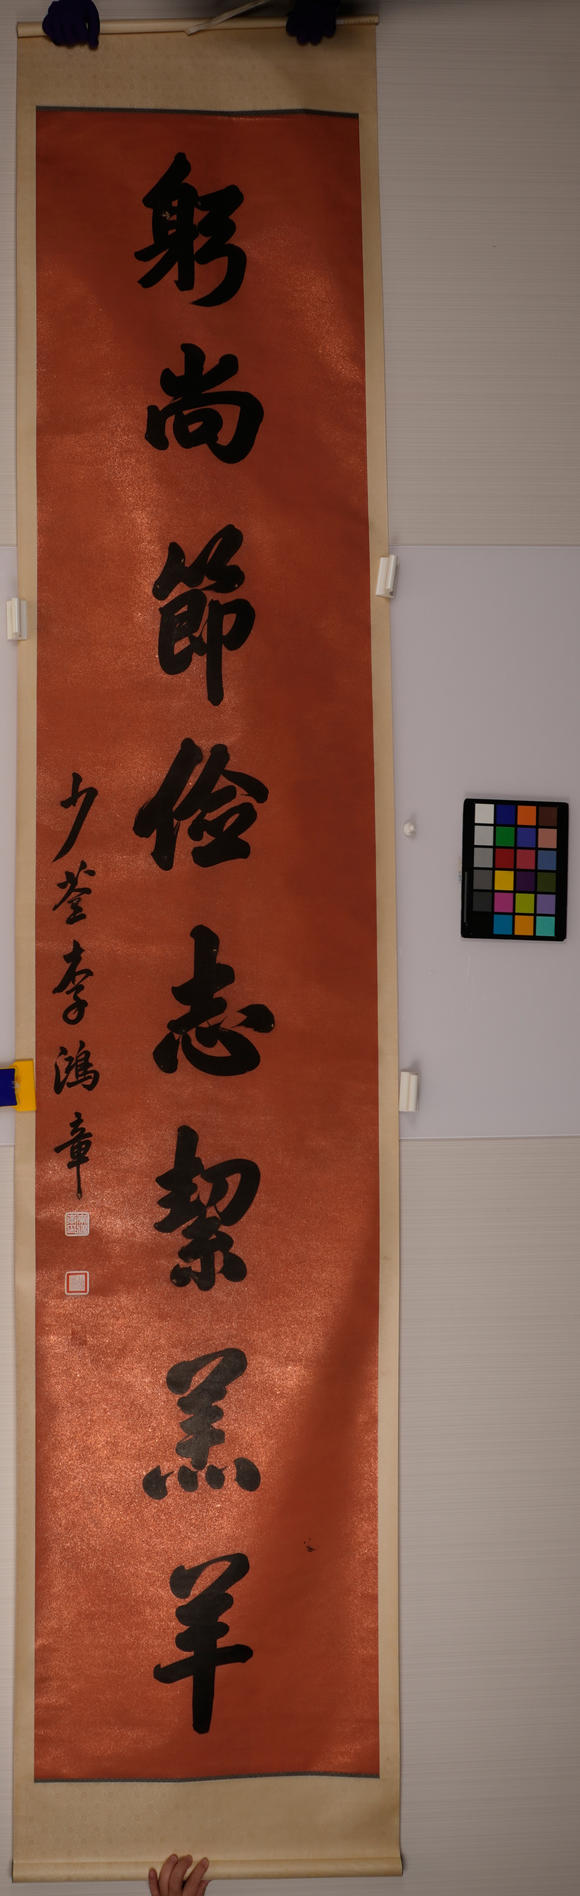 躬尚節儉志絜羔羊
少荃李鴻章